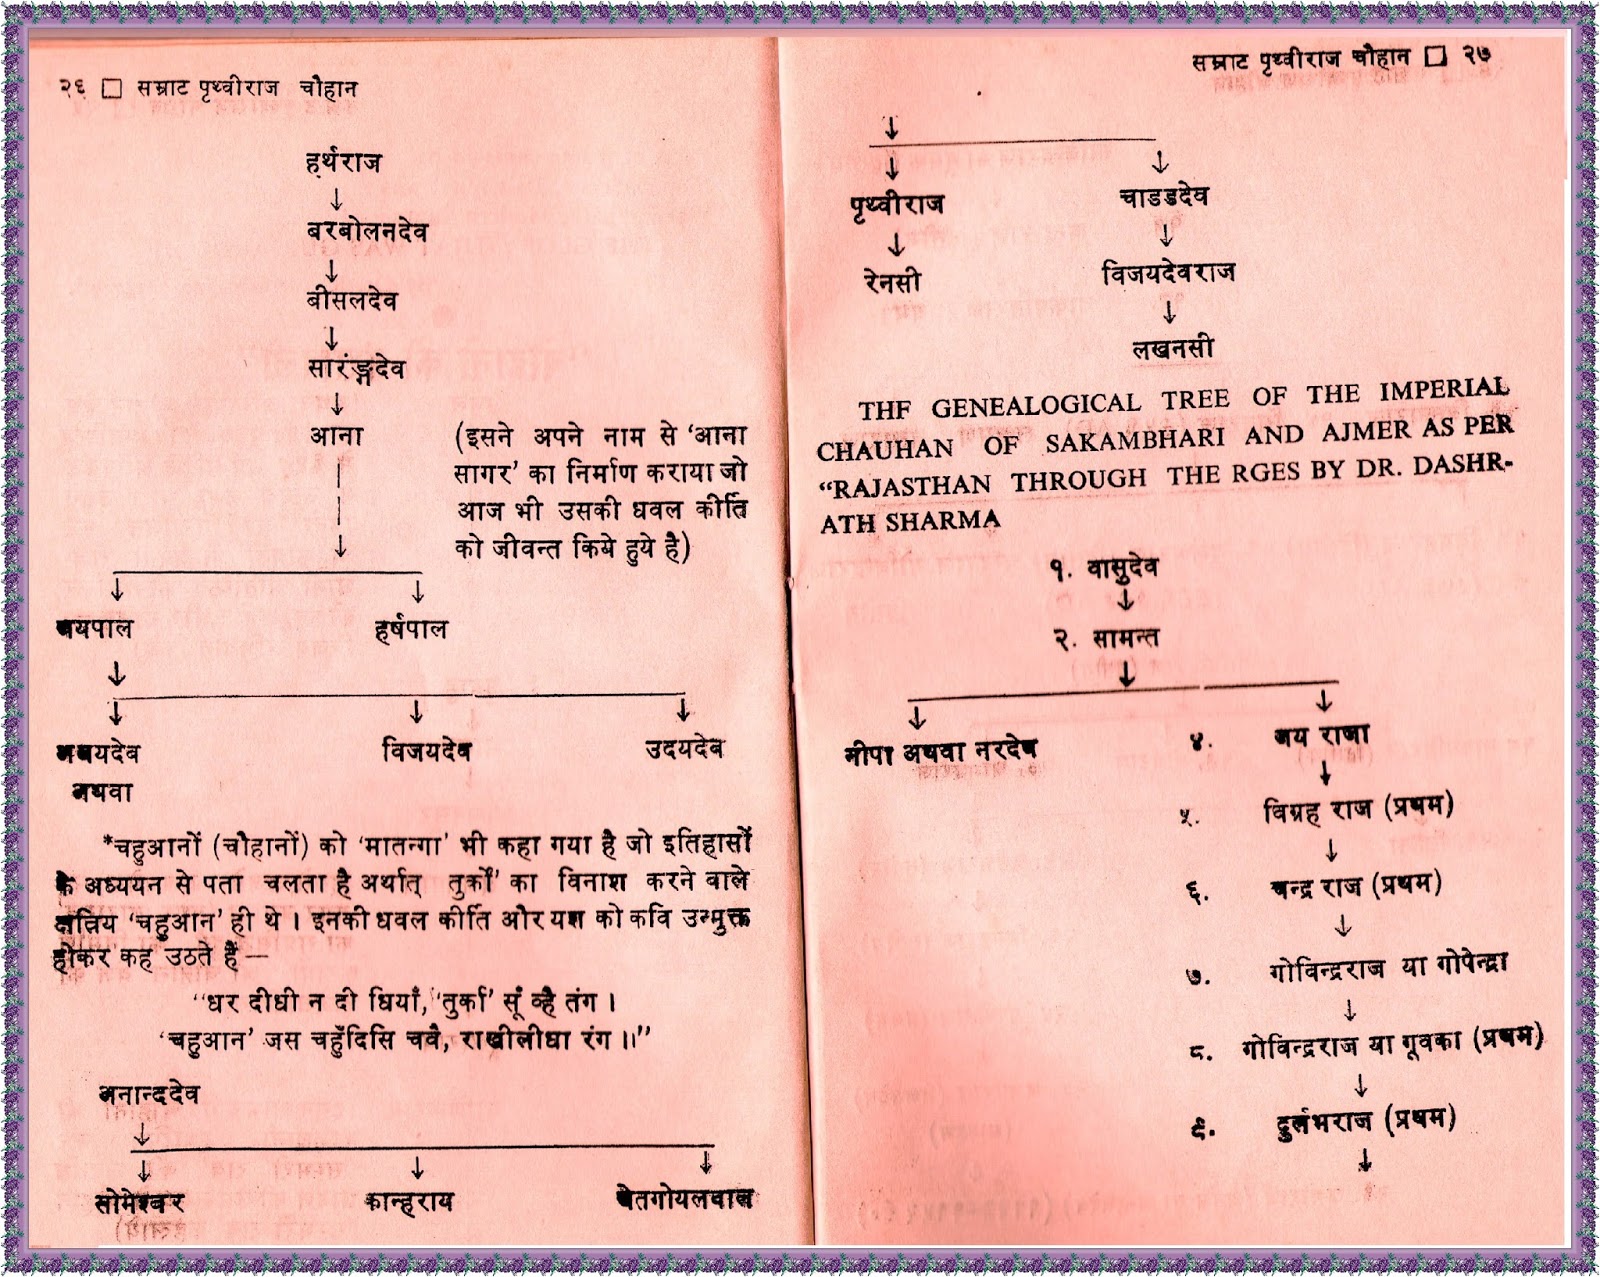 २६ □ सम्राट पृथ्वीराज चौहान
हर्थराज
↓
बरबोलनदेव
↓
बीसलदेव
↓
सारंङ्गदेव
↓
आना
(इसने अपने नाम से ‘आना
सागर’ का निर्माण कराया जो
आज भी उसकी धवल कीर्ति
को जीवन्त किये हुये है)
↓
↓ ↓
जयपाल हर्षपाल
↓
↓ ↓ ↓
अभयदेव विजयदेव उदयदेव
अथवा
*चहुआनों (चौहानों) को ‘मातन्गा’ भी कहा गया है जो इतिहासों
के अध्ययन से पता चलता है अर्थात् तुर्कों’ का विनाश करने वाले
क्षत्रिय ‘चहुआन’ ही थे । इनकी धवल कीर्ति और यश को कवि उन्मुक्त
होकर कह उठते हैं —
“धर दीधी न दी धियाँ, ‘तुर्का’ सूँ व्है तंग ।
‘चहुआन’ जस चहुँदिसि चवै, राखीलीधा रंग ।।”
अनान्ददेव
↓
↓ ↓ ↓
सोमेश्वर कान्हराय जेतगोयलवाल
सम्राट पृथ्वीराज चौहान □ २७
↓
↓ ↓
पृथ्वीराज चाडडदेव
↓ ↓
रेनसी विजयदेवराज
↓
लखनसी
THF GENEALOGICAL TREE OF THE IMPERIAL
CHAUHAN OF SAKAMBHARI AND AJMER AS PER
“RAJASTHAN THROUGH THE RGES BY DR. DASHR-
ATH SHARMA
१. वासुदेव
↓
२. सामन्त
↓
↓ ↓
नीपा अथवा नरदेव ४. जय राजा
↓
५. विग्रह राज (प्रथम)
↓
६. चन्द्र राज (प्रथम)
↓
७. गोविन्द्रराज या गोपेन्द्रा
↓
८. गोविन्द्रराज या गूवका (प्रथम)
↓
९. दुर्लभराज (प्रथम)
↓